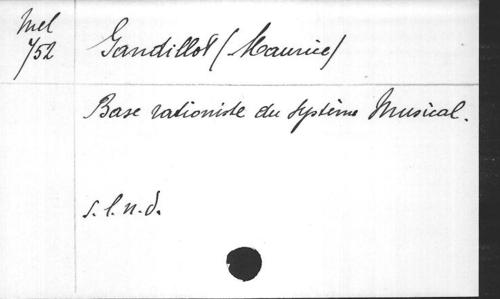 Mel
752
Gandillot (Maurice)
Base rationiste du système Musical.
s.l.n.d.